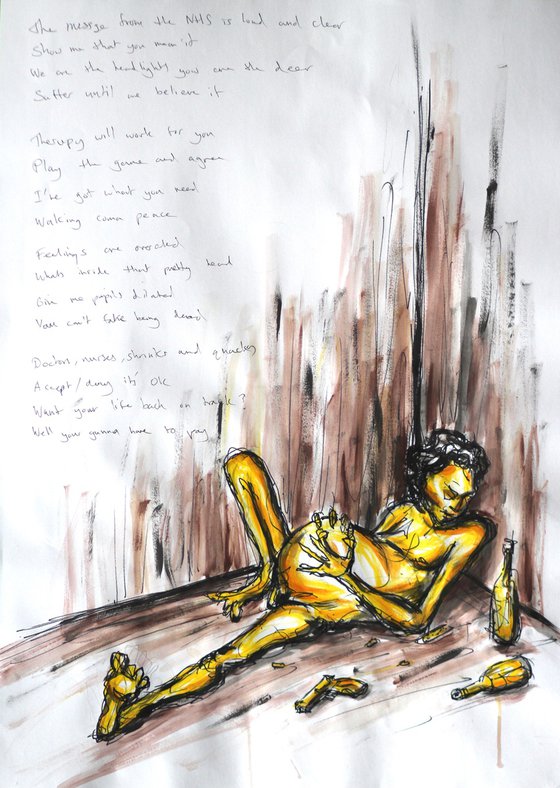 The messge from the NHS is loud and clear
Show me that you mean it
We are the headlights your are the deer
Suffer until we believe it
Therapy will work for you
Play the game and agree
I've got what you need
Walking coma peace
Feelings are overated
Whats inside that pretty head
Give me pupils dilated
You can't fake being dead
Doctors, nurses, shrinks and quacks
Accept/deny it's Ok
Want your life back on track?
Well you gunna have to pay